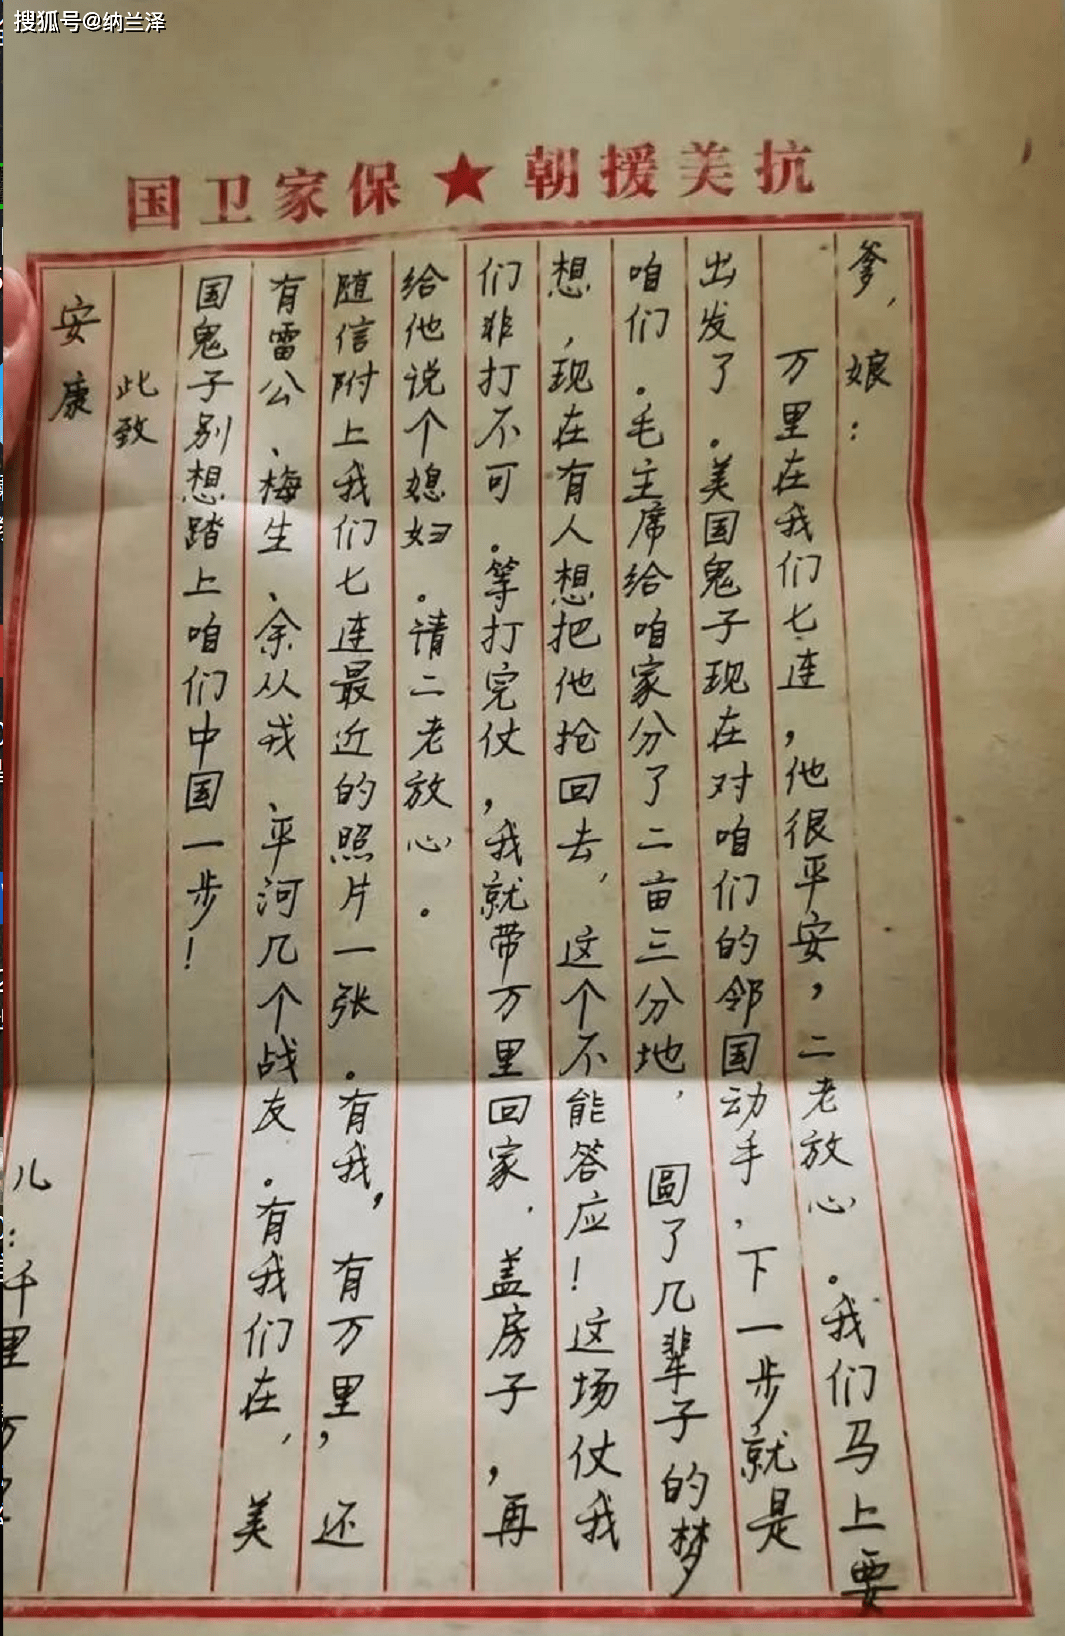 搜狐号@纳兰泽
抗美援朝★保家卫国
爹，娘：
万里在我们七连，他很平安，二老放心。我们马上要
出发了。美国鬼子现在对咱们的邻国动手，下一步就是
咱们。毛主席给咱家分了二亩三分地，圆了几辈子的梦
想，现在有人想把他抢回去，这个不能答应！这场仗我
们非打不可。等打完仗，我就带万里回家，盖房子，再
给他说个媳妇。请二老放心。
随信附上我们七连最近的照片一张。有我，有万里，还
有雷公、梅生、余从戎、平河几个战友。有我们在，美
国鬼子别想踏上咱们中国一步！
此致
安康
儿：千里 万